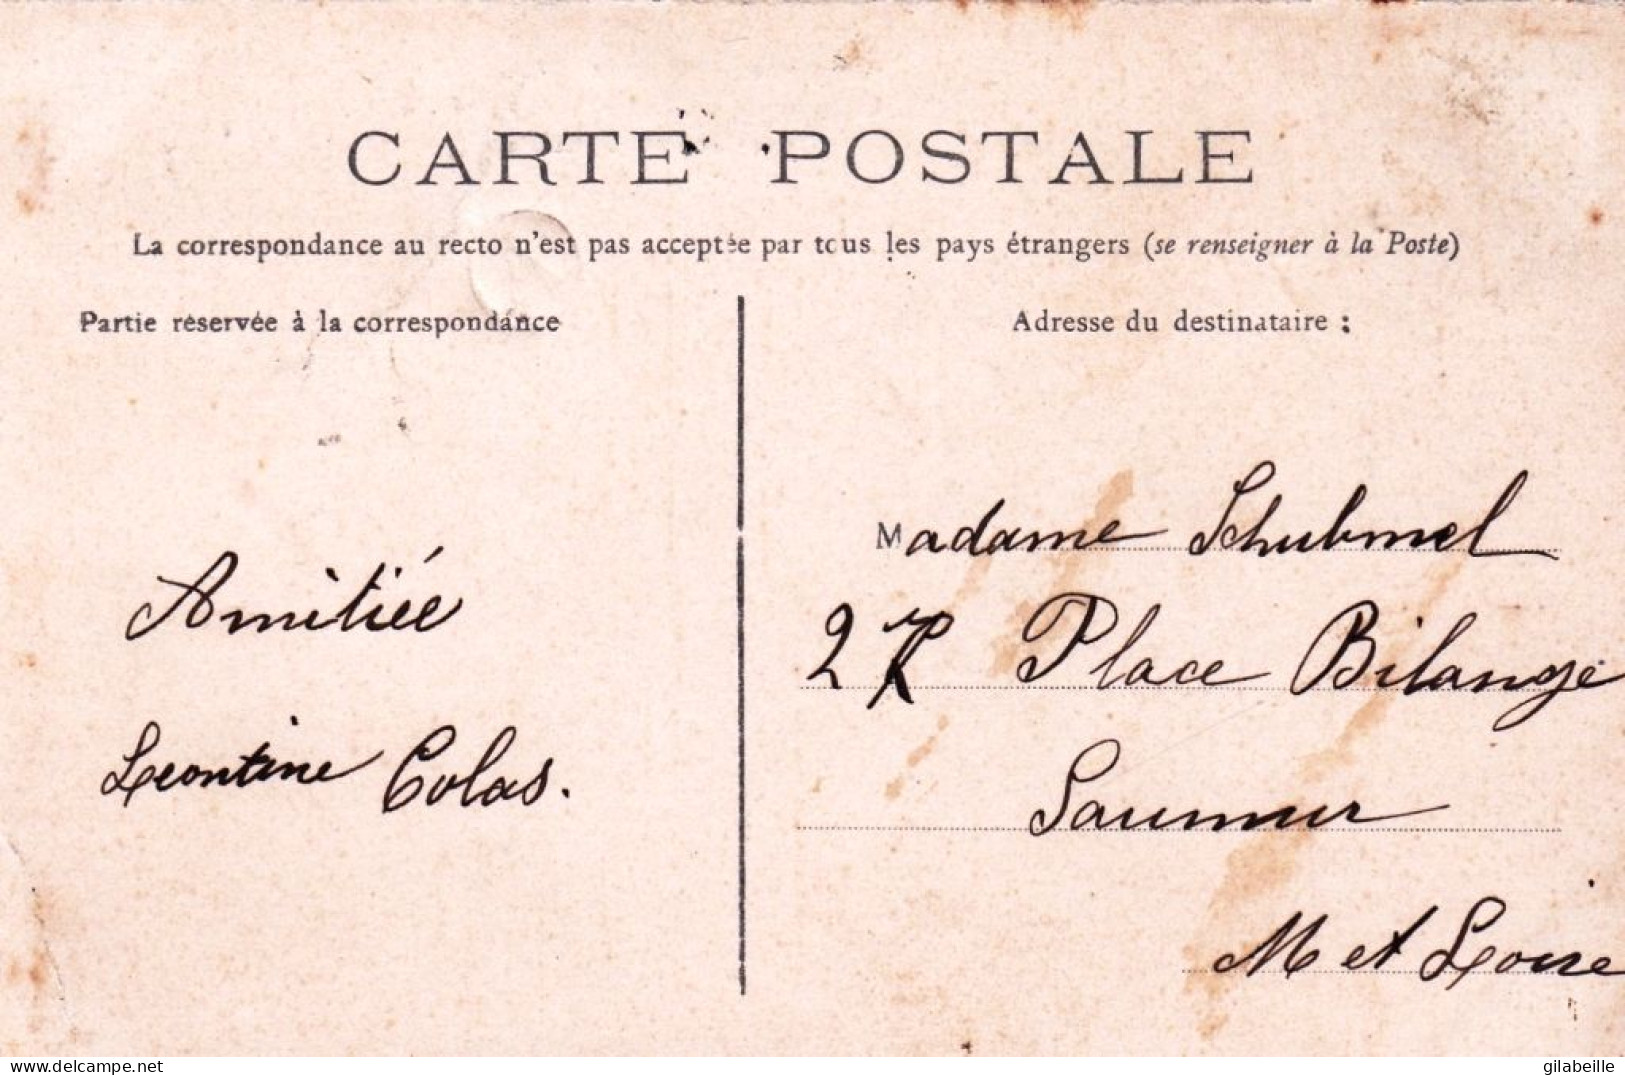 CARTE POSTALE
La correspondance au recto n'est pas acceptée par tous les pays étrangers (se renseigner à la Poste)
Partie réservée à la correspondance
Adresse du destinataire :
Amitiée
Leontine Colas.
Madame Schubmel
27 Place Bilange
Saumur
M et Loire
delcampe.net
gilabeille